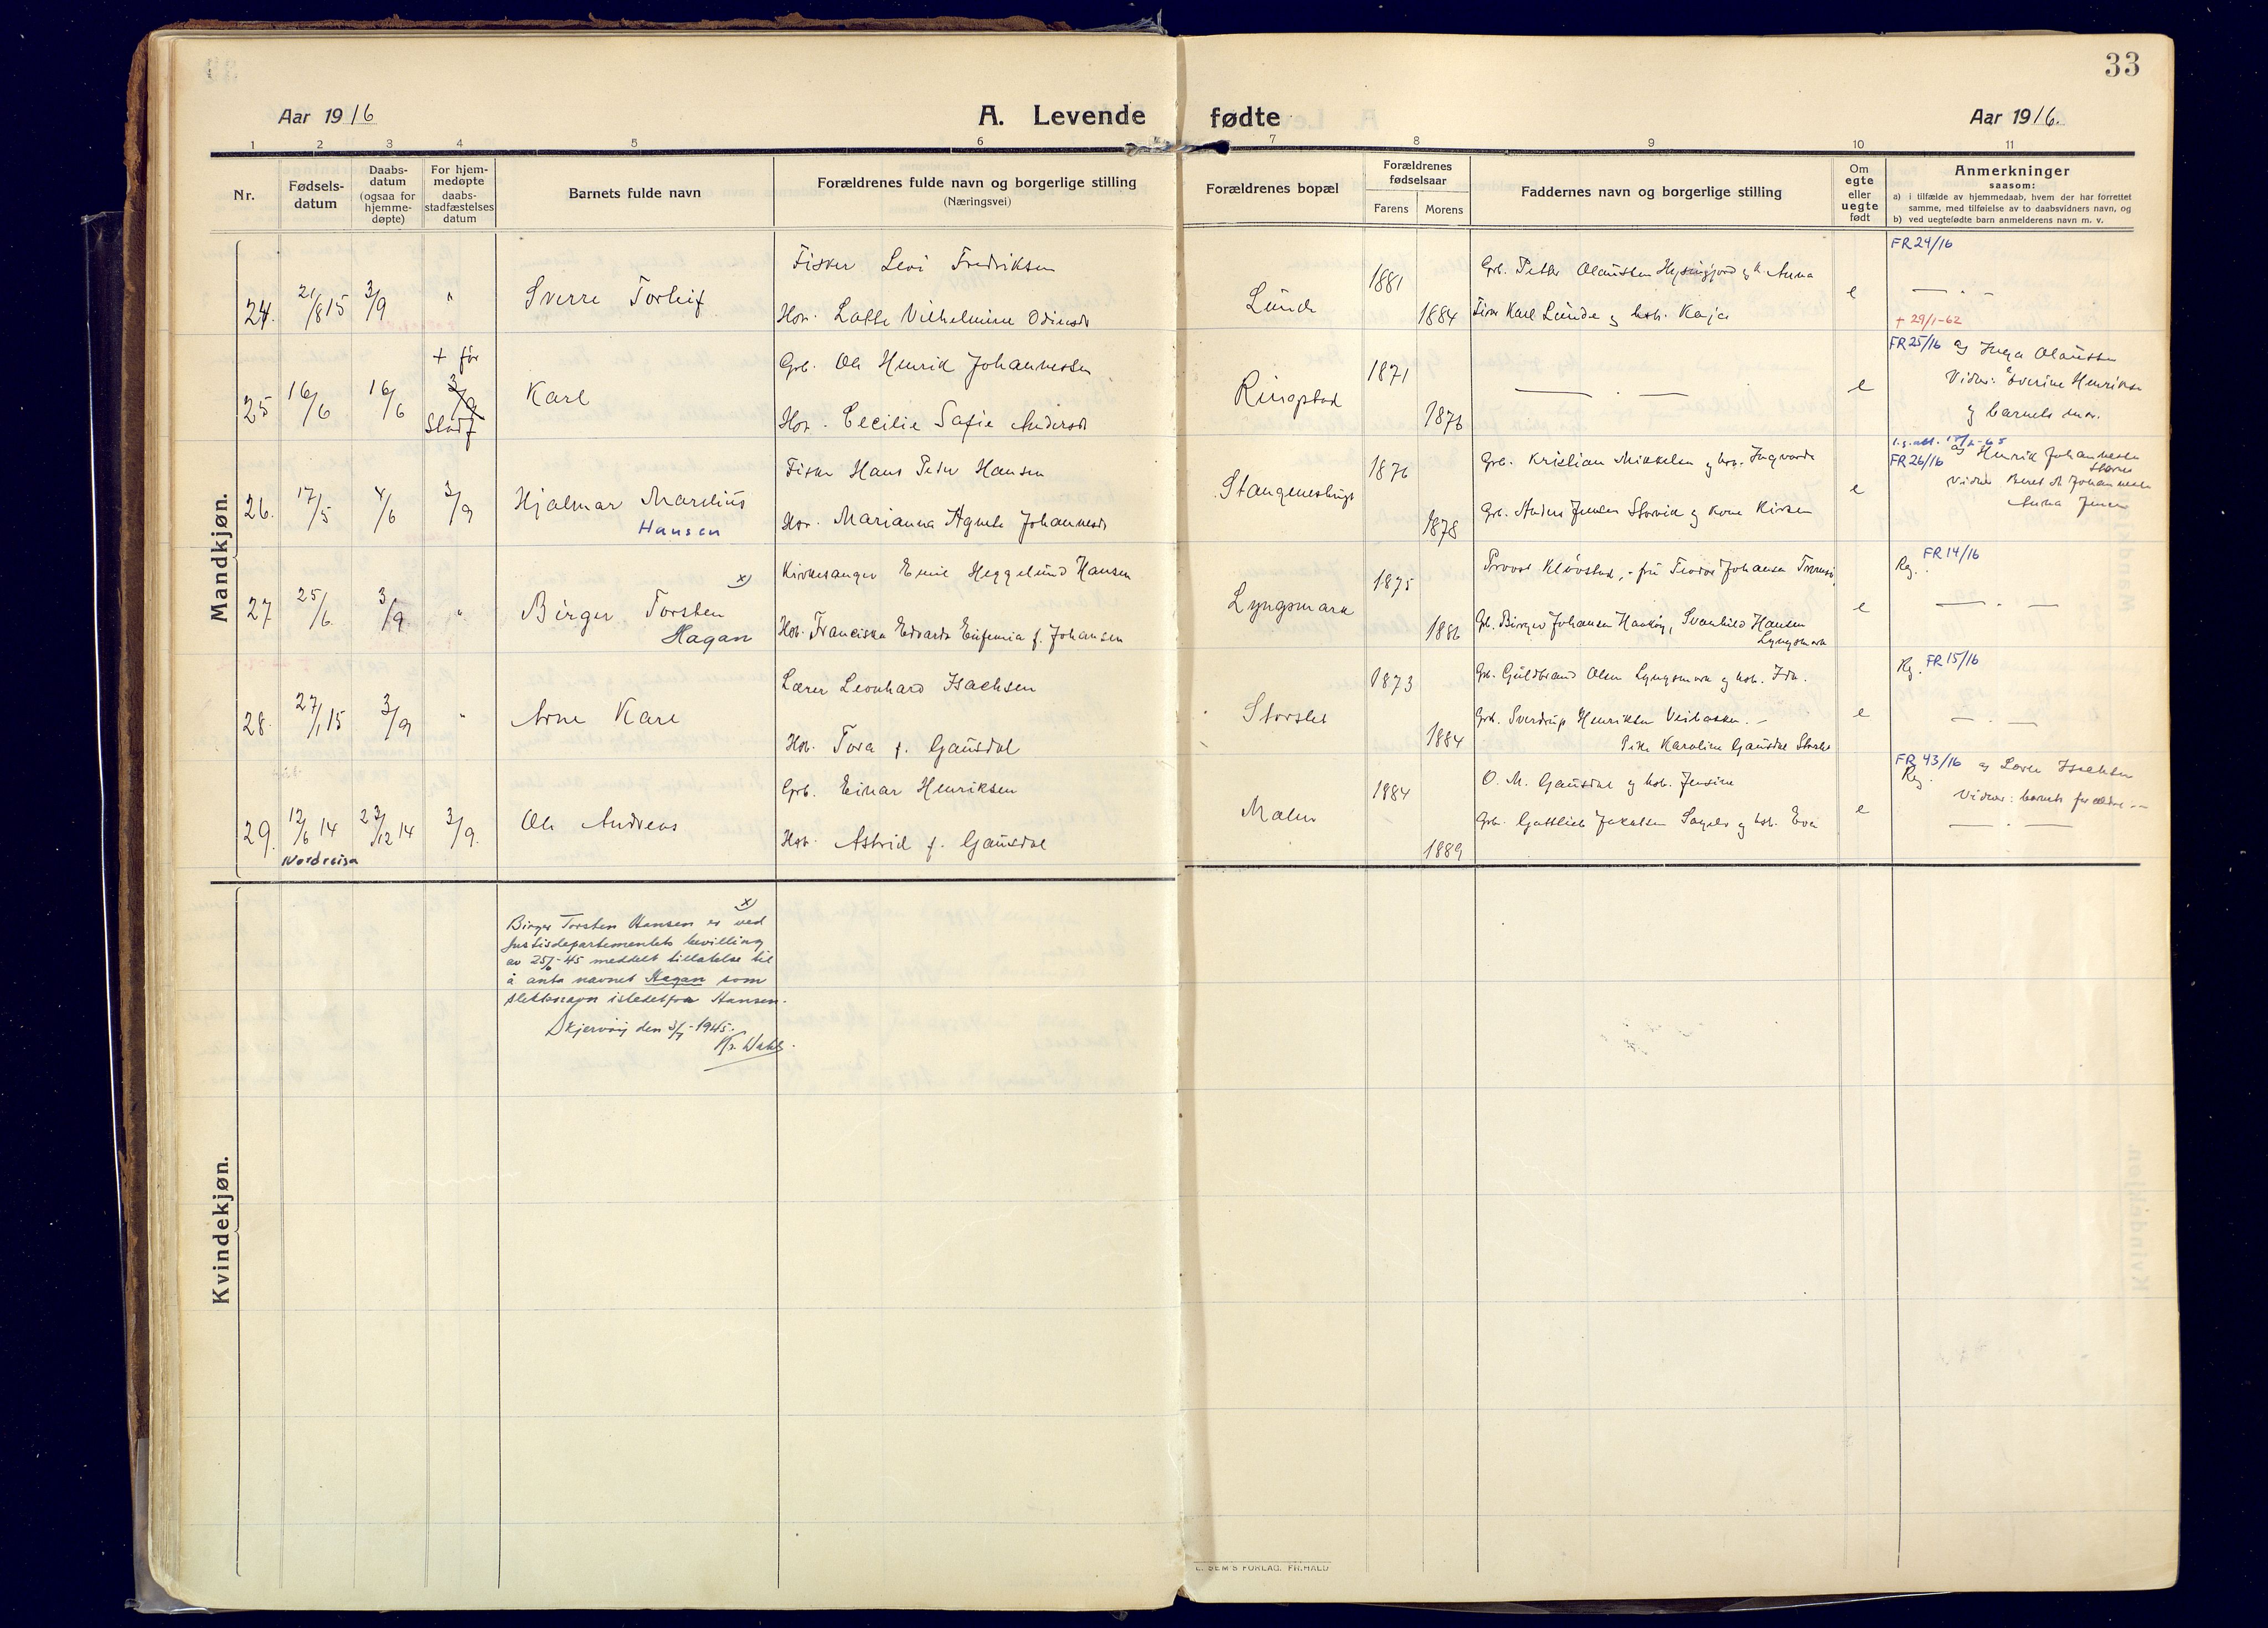 33
Aar 1916
A. Levende
fødte
Aar 1916.
1 2 3 4 5 6 7 8 9 10 11
Nr.
Fødsels-
datum
Daabs-
datum
(ogsaa for
hjemme-
døpte)
For hjem-
medøpte
daabs-
stadfæstelses
datum
Barnets fulde navn
Forældrenes fulde navn og borgerlige stilling
(Næringsvei)
Forældrenes bopæl
Forældrenes
fødselsaar
Farens Morens
Faddernes navn og borgerlige stilling
Om
egte
eller
uegte
født
Anmerkninger
saasom:
a) i tilfælde av hjemmedaab, hvem der har forrettet
samme, med tilføielse av to daabsvidners navn, og
b) ved uegtefødte barn anmelderens navn m. v.
Mandkjøn.
24. 21/8 15 3/9 " Sverre Torleif
Fisker Levi Fredriksen
Hstr. Lotte Vilhelmine Odinsdt
Lunde 1881 1884
Grb. Petter Olaussen og k. Anna
Fisker Karl Lunde og hstr. Kaja
e
FR 24/16
— . —
+ 29/1-62
25 16/6 16/6 + før
3/9
Stadf
Karl
Grb. Ole Henrik Johannessen
Hstr. Cecilie Safie Andersdt
Ringstad 1871 1876
— . —
e
FR 25/16 af Inga Olaussen
Vidner: Severine Henriksen
og barnets mor.
26. 17/5 4/6 3/9 Hjalmar Marelius
Hansen
Fisker Hans Peder Hansen
Hstr. Marianna Agnete Johannesdt
Stangnesbugt 1876 1878
Grb. Kristian Mikkelsen og hstr. Ingvarda
Grb. Anders Jensen Storvik og kone Kirsten
e
FR 26/16 af Henrik Johannessen
Vidner Beret M Johannessen
Anna Jensen
27 25/6 3/9 " Birger Torsten x)
Hagan
Kirkesanger Emil Heggelund Hansen
Hstr. Franciska Edvarda Eufemia f. Johansen
Lyngsmark 1875 1886
Provst Kløvstad, - fru Teodor Johansen Tromsø,
Grb. Birger Johansen Haukøy, Svanhild Hansen
Lyngsmark
e
Reg. FR 14/16
— . —
28. 27/1 15 3/9 " Arne Karl
Lærer Leonhard Isachsen
Hstr. Tora f. Gausdal
Storslet 1873 1884
Grb. Guldbrand Olsen Lyngsmark og hstr. Ida.
Grb. Sverdrup Henriksen Veibakken. -
Pike Karoline Gausdal Storslet
e
Reg. FR 15/16
— . —
29. 12/6 14 23/12 14 3/9. Ole Andreas
Nordreisa
Grb. Einar Henriksen
Hstr. Astrid f. Gausdal
Malen 1884 1889
O. M. Gausdal og hstr. Jensine
Grb. Gottlieb Jakobsen Sappen og hstr. Eva
e
FR 43/16 af Lærer Isachsen
Reg. Vidner: barnets forældre -
— . —
Kvindekjøn.
x)
Birger Torsten Hansen er ved
Justisdepartementets bevilling
av 25/6-45 meddelt tillatelse til
å anta navnet Hagan som
slektsnavn istedetfor Hansen.
Skjervøy den 3/7-1945.
Kr. Wahl.
E. SEM'S FORLAG. FR.HALD